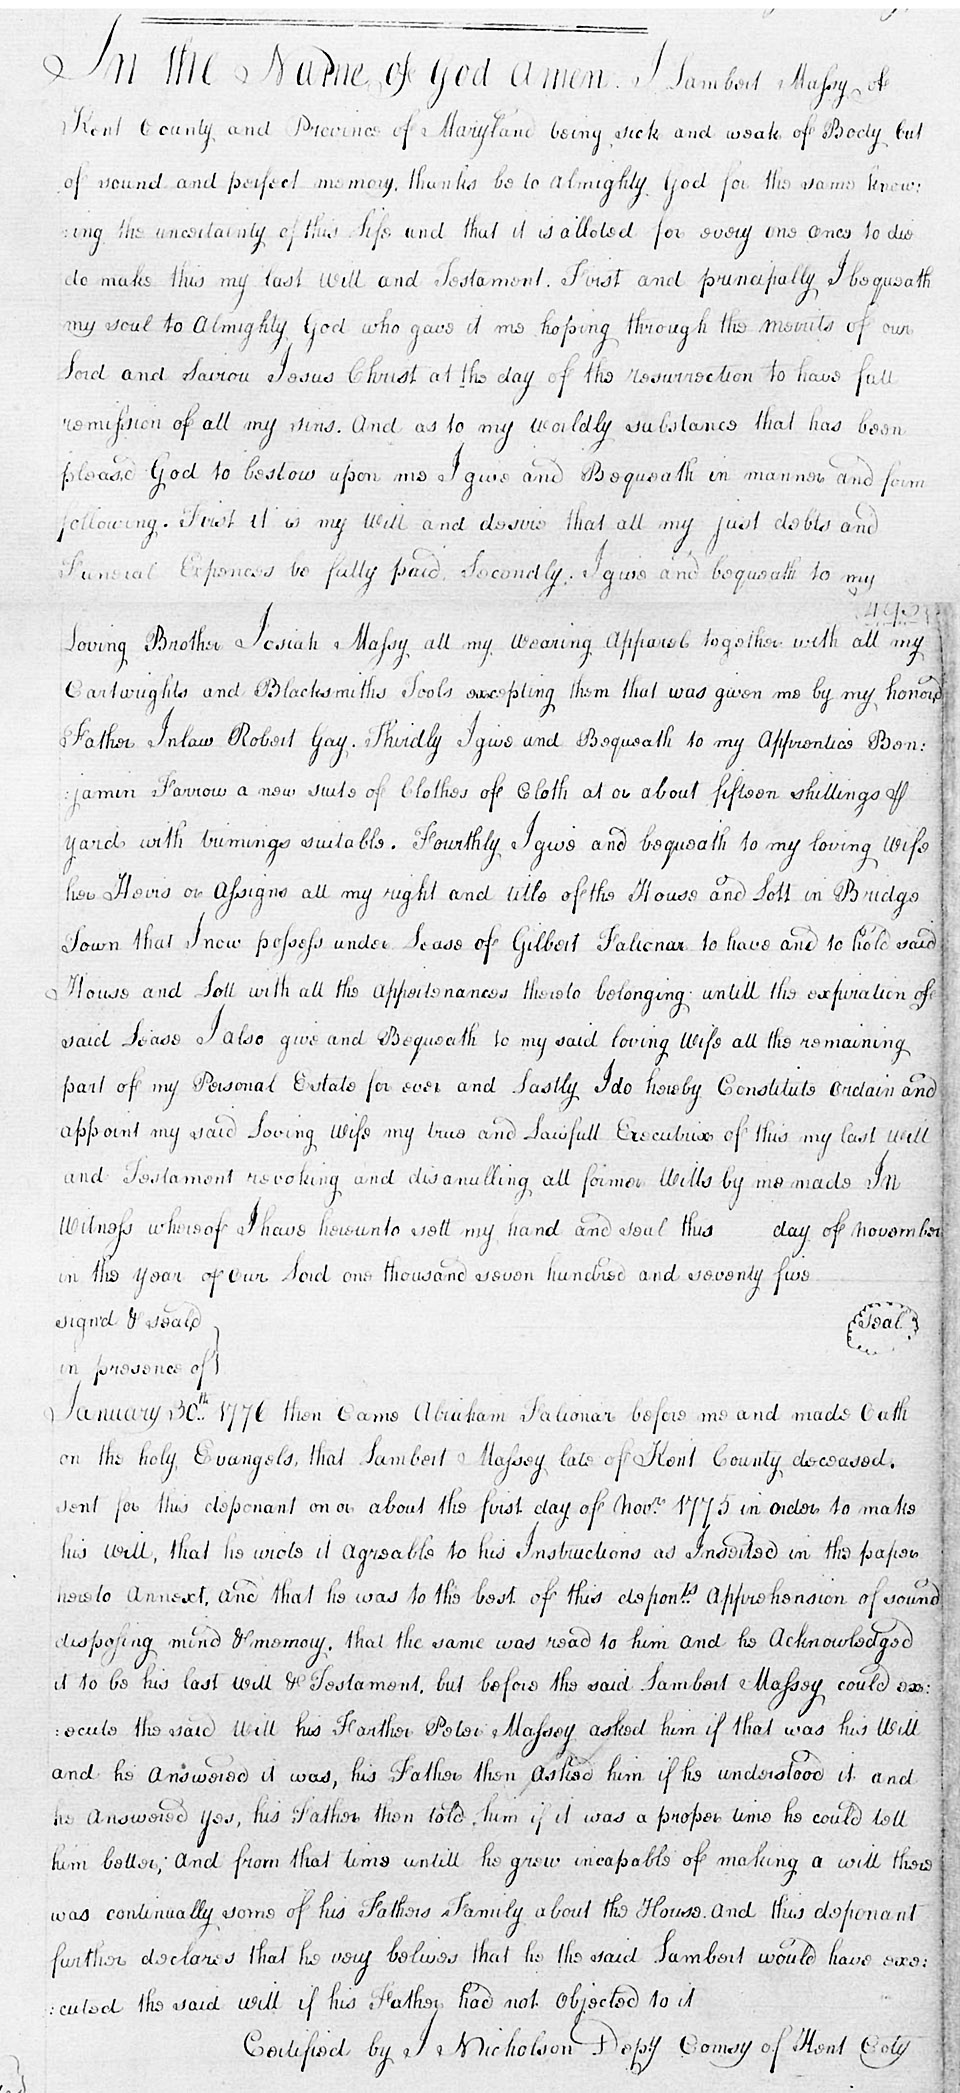 In the Name of God Amen. I Lambert Massy of
Kent County and Province of Maryland being sick and weak of Body but
of sound and perfect memory, thanks be to Almighty God for the same know:
:ing the uncertainty of this life and that it is alloted for every one once to die
do make this my last Will and Testament. First and principally I bequeath
my soul to Almighty God who gave it me hoping through the merrits of our
Lord and Saviou Jesus Christ at the day of the resurrection to have full
remission of all my sins. And as to my worldly substance that has been
pleased God to bestow upon me I give and Bequeath in manner and form
following. First it is my Will and desire that all my just debts and
Funeral Expences be fully paid. Secondly. I give and bequeath to my
492
Loving Brother Josiah Massy all my Wearing Apparel together with all my
Cartwrights and Blacksmiths Tools excepting them that was given me by my honord
Father Inlaw Robert Gay. Thirdly I give and Bequeath to my Apprentice Ben:
:jamin Farrow a new suite of Clothes of Cloth at or about fifteen shillings ⅌
yard with trimings suitable. Fourthly I give and bequeath to my loving Wife
her Heirs or Assigns all my right and title of the House and Lott in Bridge
Town that I now possess under Lease of Gilbert Falionar to have and to hold said
House and Lott with all the Appertenances thereto belonging untill the expiration of
said Lease I also give and Bequeath to my said loving Wife all the remaining
part of my Personal Estate for ever and Lastly I do hereby Constitute ordain and
appoint my said Loving Wife my true and Lawfull Executrix of this my last Will
and Testament revoking and disanulling all former Wills by me made In
Witness whereof I have hereunto sett my hand and seal this day of November
in the year of our Lord one thousand seven hundred and seventy five
signd & seald
Seal
in presence of
January 30th 1776 then Came Abraham Falionar before me and made Oath
on the holy Evangels, that Lambert Massey late of Kent County deceased.
sent for this deponant on or about the first day of Novr. 1775 in order to make
his Will, that he wrote it Agreable to his Instructions as Inserted in the paper
hereto Annext, and that he was to the best of this deponts. Apprehension of sound
disposing mind & memory, that the same was read to him and he Acknowledged
it to be his last Will & Testament, but before the said Lambert Massey could exe:
:ecute the said Will his Farther Peter Massey asked him if that was his Will
and he Answered it was, his Father then Asked him if he understood it and
he Answered yes, his Father then told him if it was a proper time he could tell
him better, And from that time untill he grew incapable of making a will there
was continually some of his Fathers Family about the House. And this deponant
further declares that he very belives that he the said Lambert would have exe:
:cuted the said will if his Father had not Objected to it
Certified by J Nicholson Depy Comsy of Kent Coty